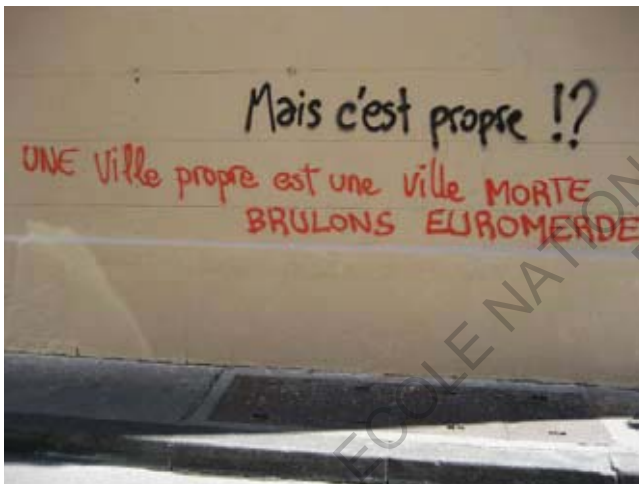 Mais c'est propre !?
UNE Ville propre est une ville MORTE
BRULONS EUROMERDE
ECOLE NATION